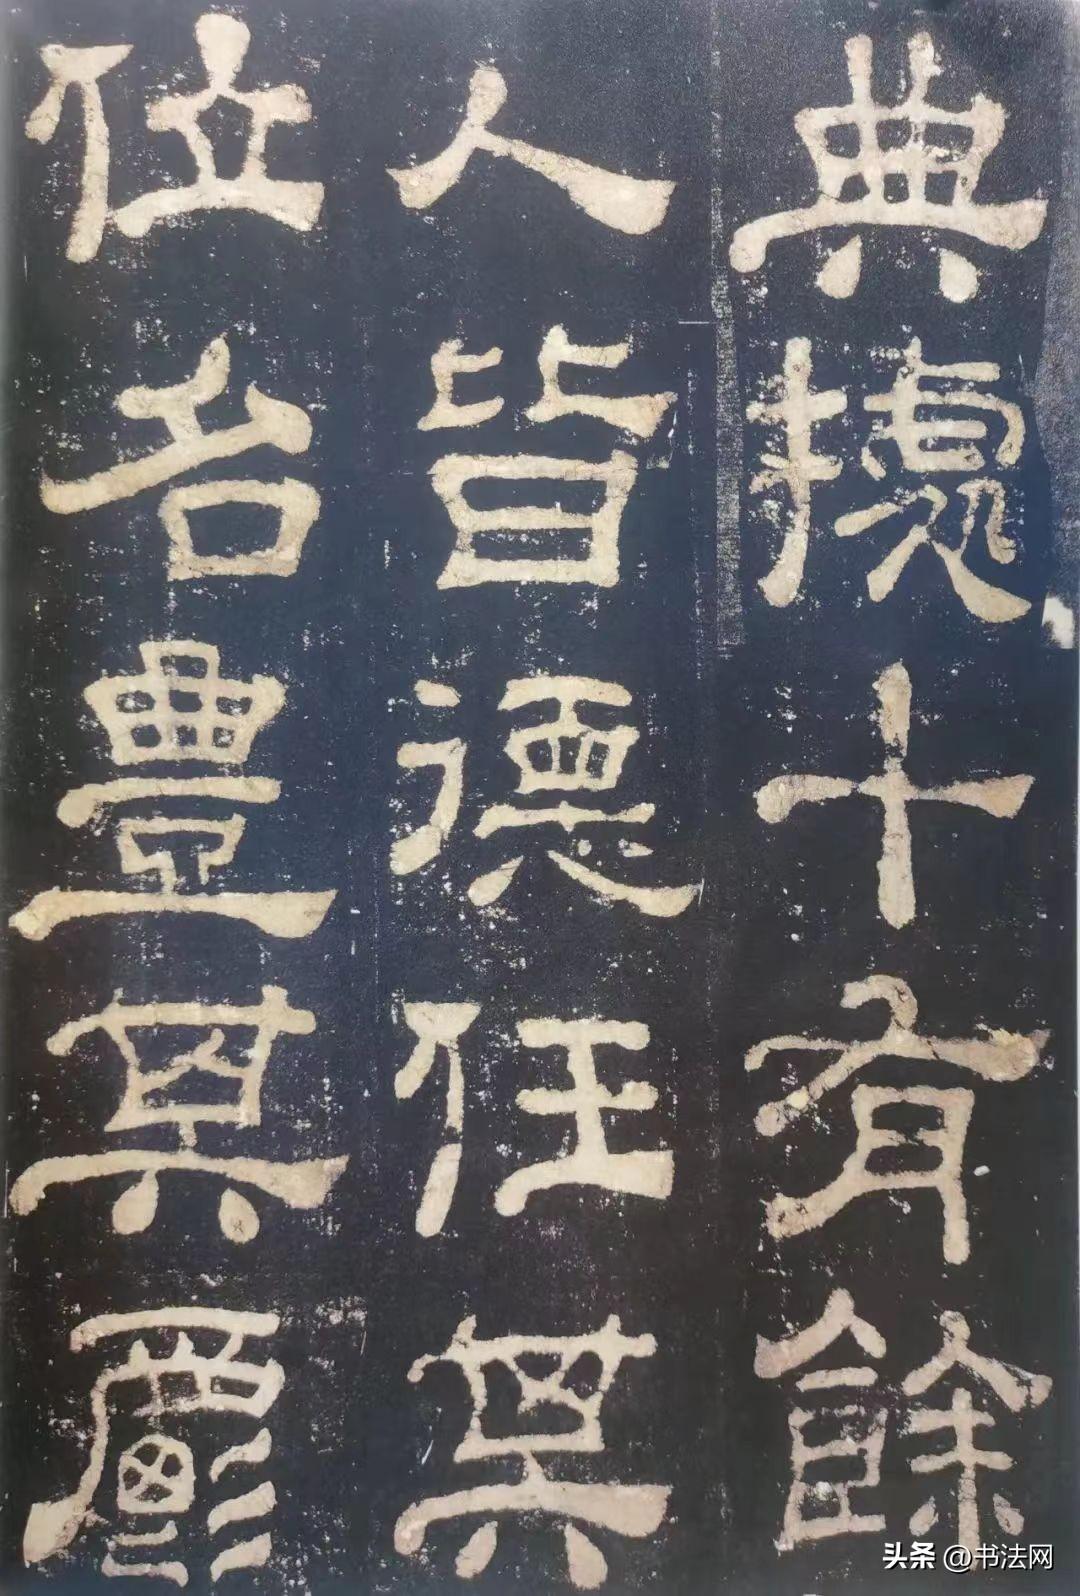 典據十有餘
人皆德任其
位名豐其爵
头条 @书法网